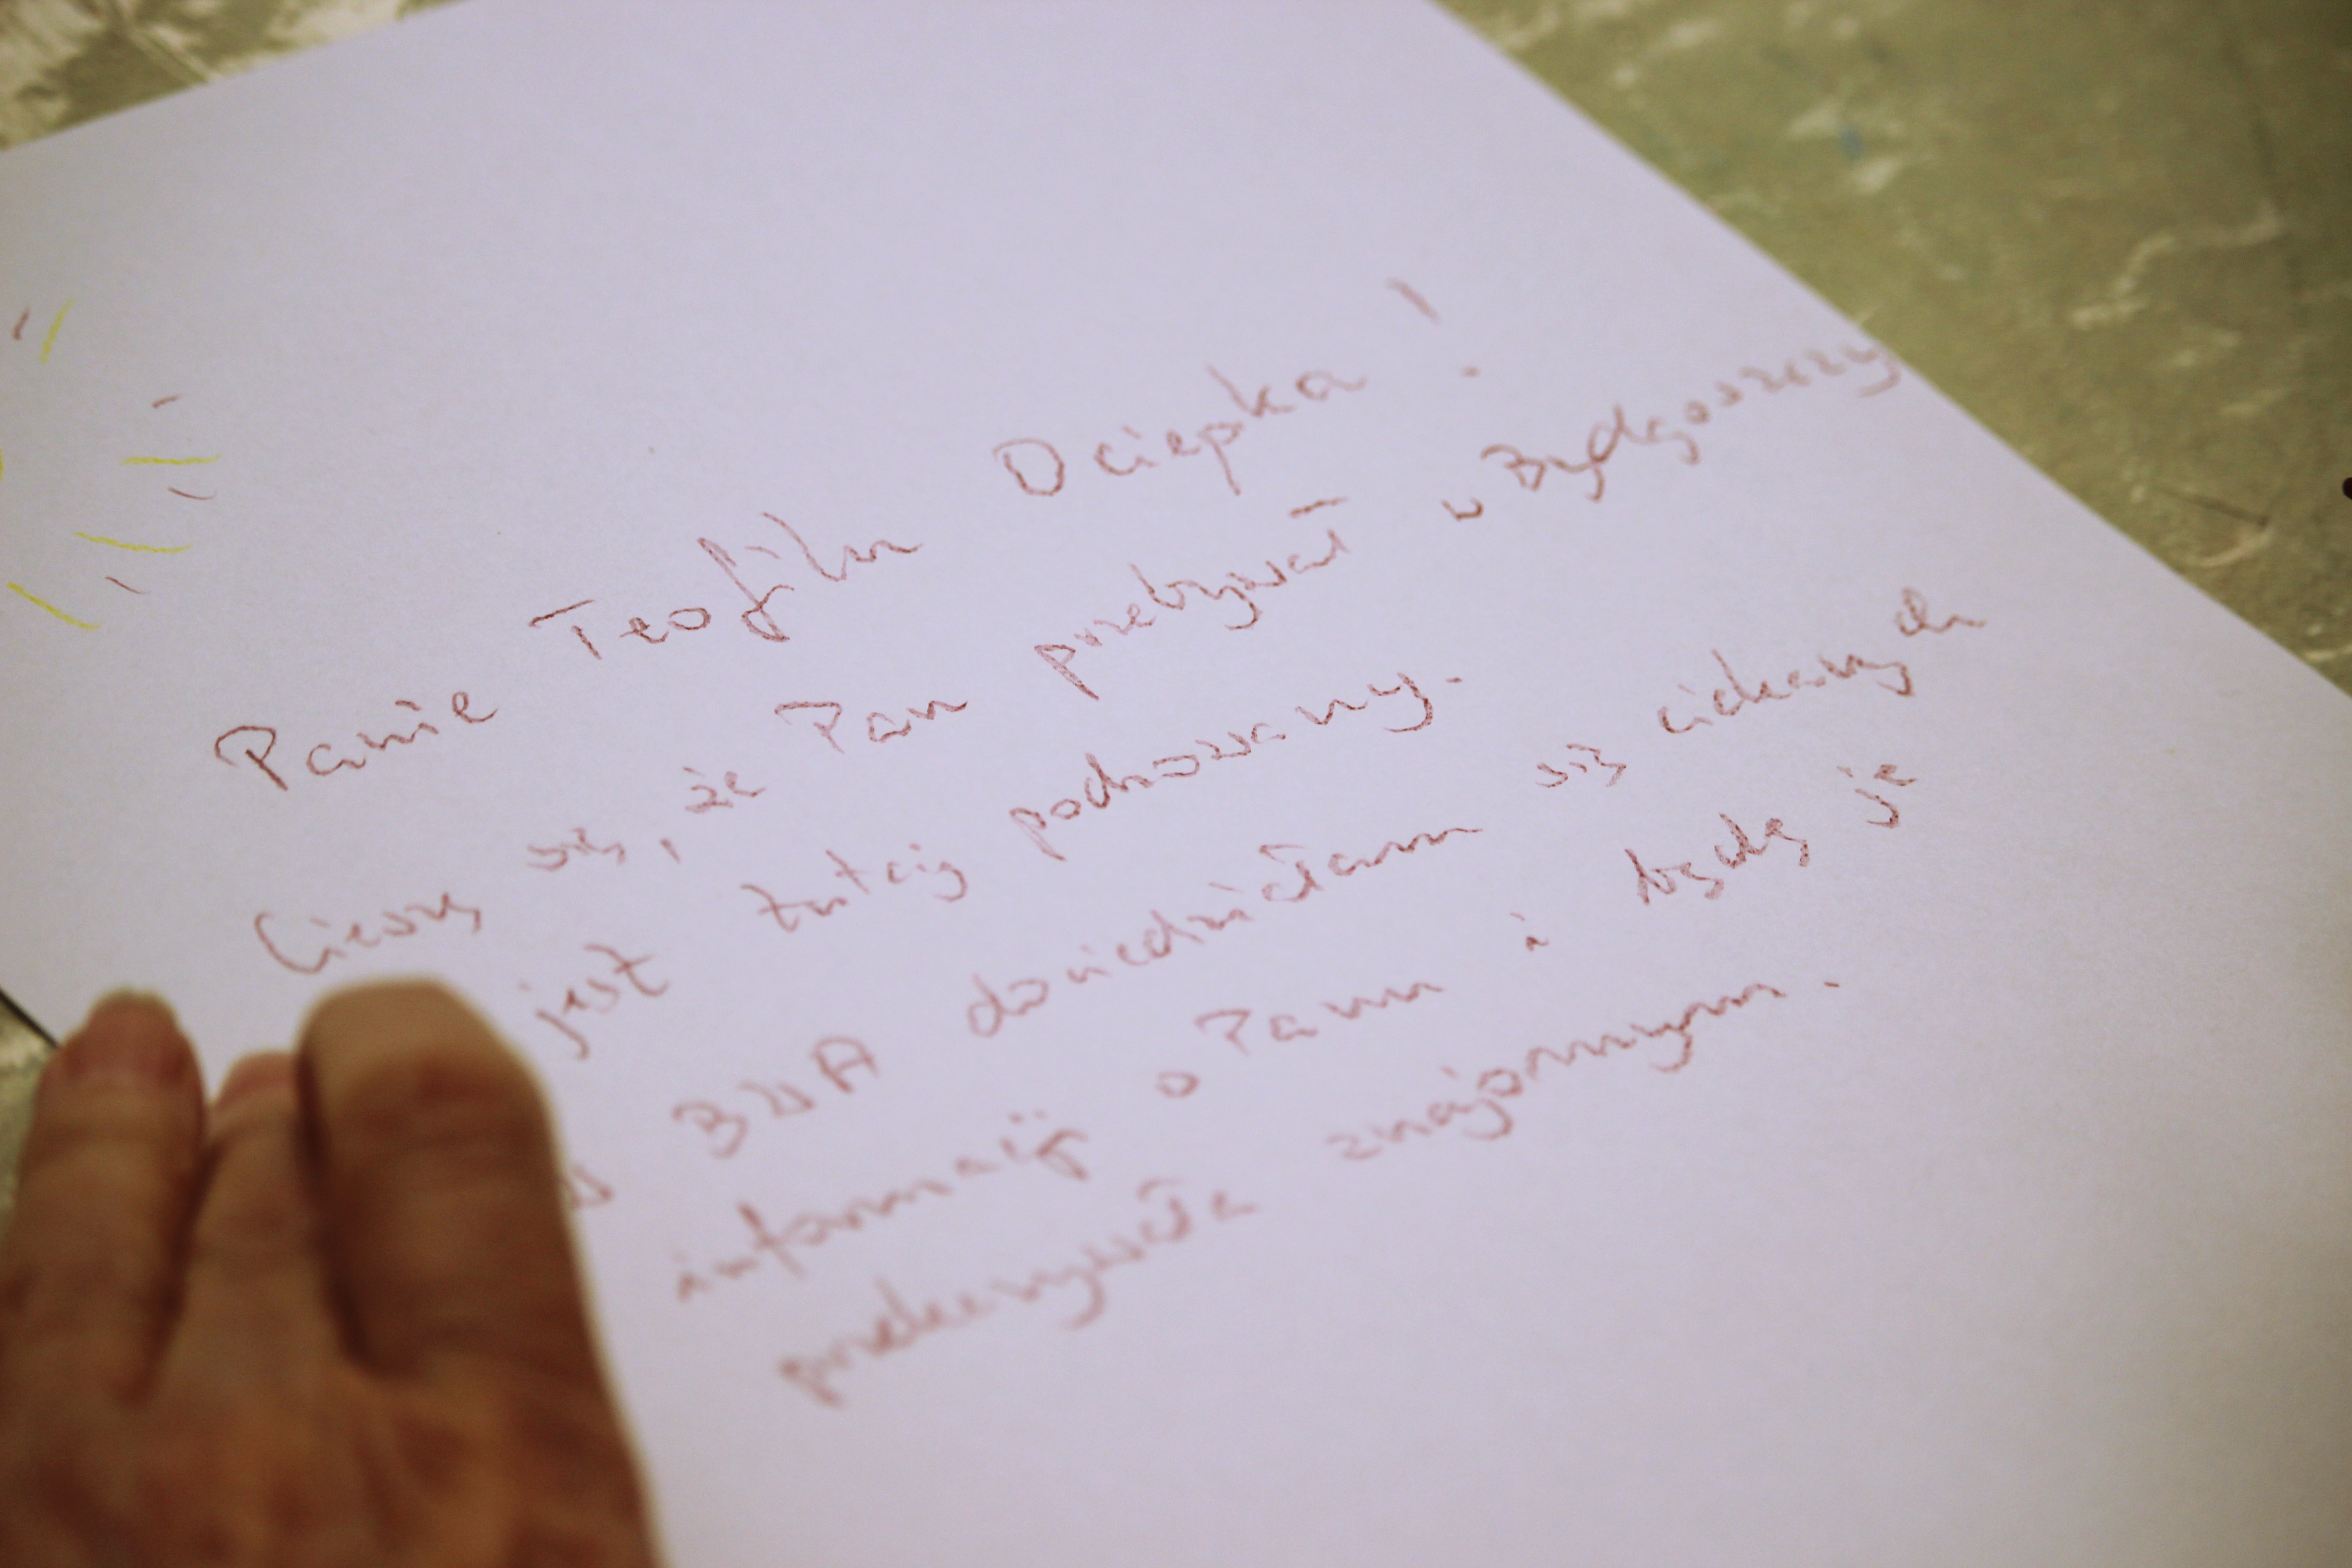 Panie Teofilu Ociepka!
Cieszę się, że Pan przebywał w Bydgoszczy
jest tutaj pochowany.
w BWA dowiedziałam się ciekawych
informacji o Panu i będę je
przekazywała znajomym.